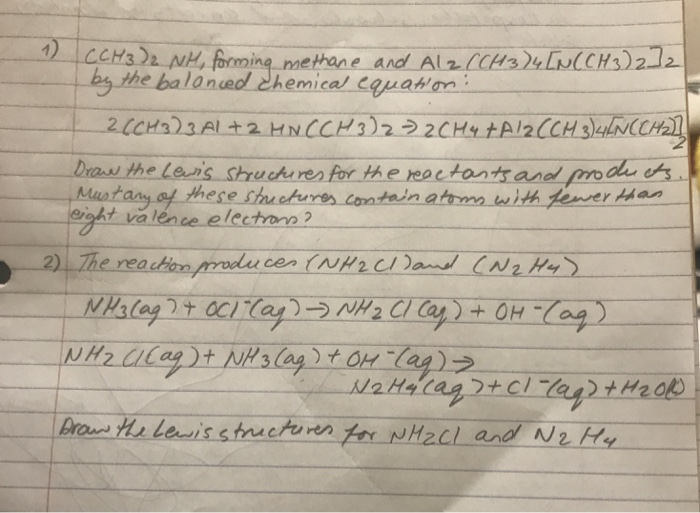 1) (CH3)2 NH, forming methane and Al2(CH3)4[N(CH3)2]2
by the balanced chemical equation:
2(CH3)3Al + 2 HN(CH3)2 → 2CH4 + Al2(CH3)4[N(CH2)]2
Draw the Lewis structures for the reactants and products.
Must any of these structures contain atoms with fewer than
eight valence electrons?
2) The reaction produces (NH2Cl) and (N2H4)
NH3(aq) + OCl-(aq) → NH2Cl(aq) + OH-(aq)
NH2Cl(aq) + NH3(aq) + OH-(aq) →
N2H4(aq) + Cl-(aq) + H2O(l)
Draw the Lewis structures for NH2Cl and N2H4